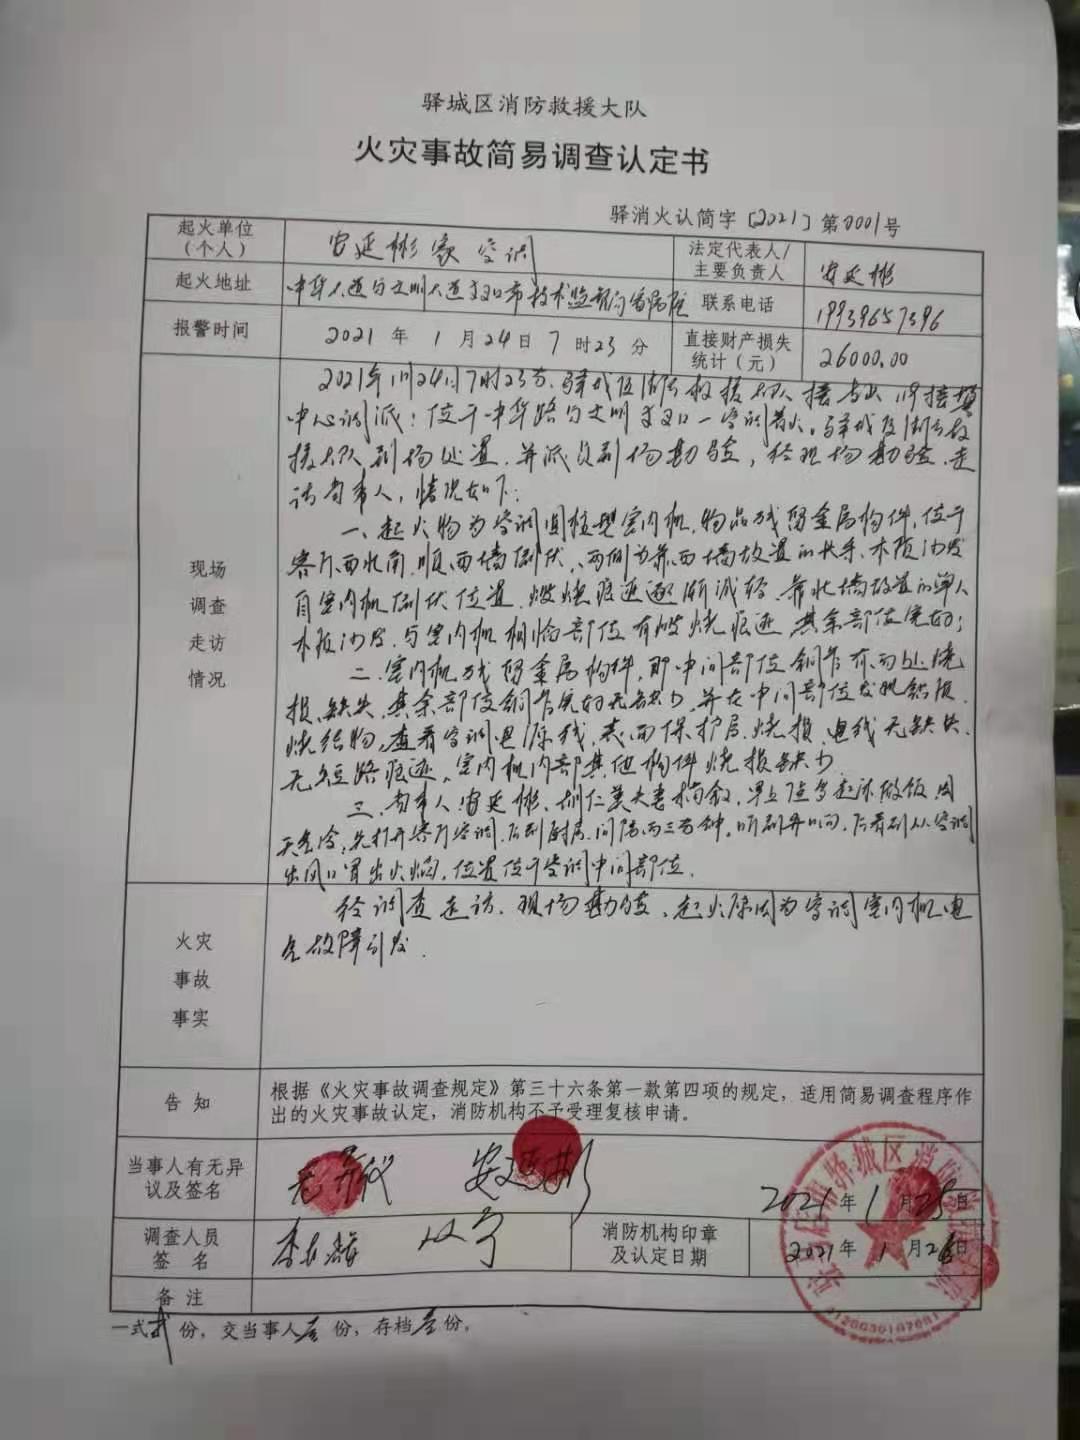 驿城区消防救援大队
火灾事故简易调查认定书
驿消火认简字〔2021〕第0001号
起火单位（个人） 安延彬家空调 法定代表人/主要负责人 安延彬
起火地址 中华大道与文明大道交叉口市技术监督局家属院 联系电话 19939657396
报警时间 2021年1月24日7时23分 直接财产损失统计（元） 26000.00
现场调查走访情况
2021年1月24日7时23分，驿城区消防救援大队接支队作战指挥
中心调派：位于中华路与文明交叉口一空调着火。驿城区消防救
援大队到场处置，并派员到场勘验，经现场勘验、走
访当事人，情况如下：
一、起火物为空调圆柱型室内机，物品残留金属构件，位于
客厅西北角，顺西墙倒伏，两侧为靠西墙放置的木质沙发
自室内机倒伏位置，燃烧痕迹逐渐减轻，靠北墙放置的单人
木质沙发，与室内机相临部位有燃烧痕迹，其余部位完好；
二、室内机残留金属构件，即中间部位铜片有两处烧
损、缺失，其余部位铜片完好无缺少，并在中间部位发现铝质
烧结物，查看空调电源线，表面保护层烧损，电线无缺失、
无短路痕迹，室内机内部其他构件烧损缺少。
三、当事人安延彬、夫妻描叙，早上7点多起床做饭，因
天气冷，先打开客厅空调，后到厨房，间隔两三分钟，听到异响，后看到从空调
出风口冒出火焰，位置位于空调中间部位。
火灾事故事实
经调查走访、现场勘验，起火原因为空调室内机电
气故障引发。
告知
根据《火灾事故调查规定》第三十六条第一款第四项的规定，适用简易调查程序作
出的火灾事故认定，消防机构不予受理复核申请。
当事人有无异议及签名 无异议 安延彬 2021年1月25日
调查人员签名 消防机构印章及认定日期 2021年1月26日
备注
一式贰份，交当事人壹份，存档壹份。